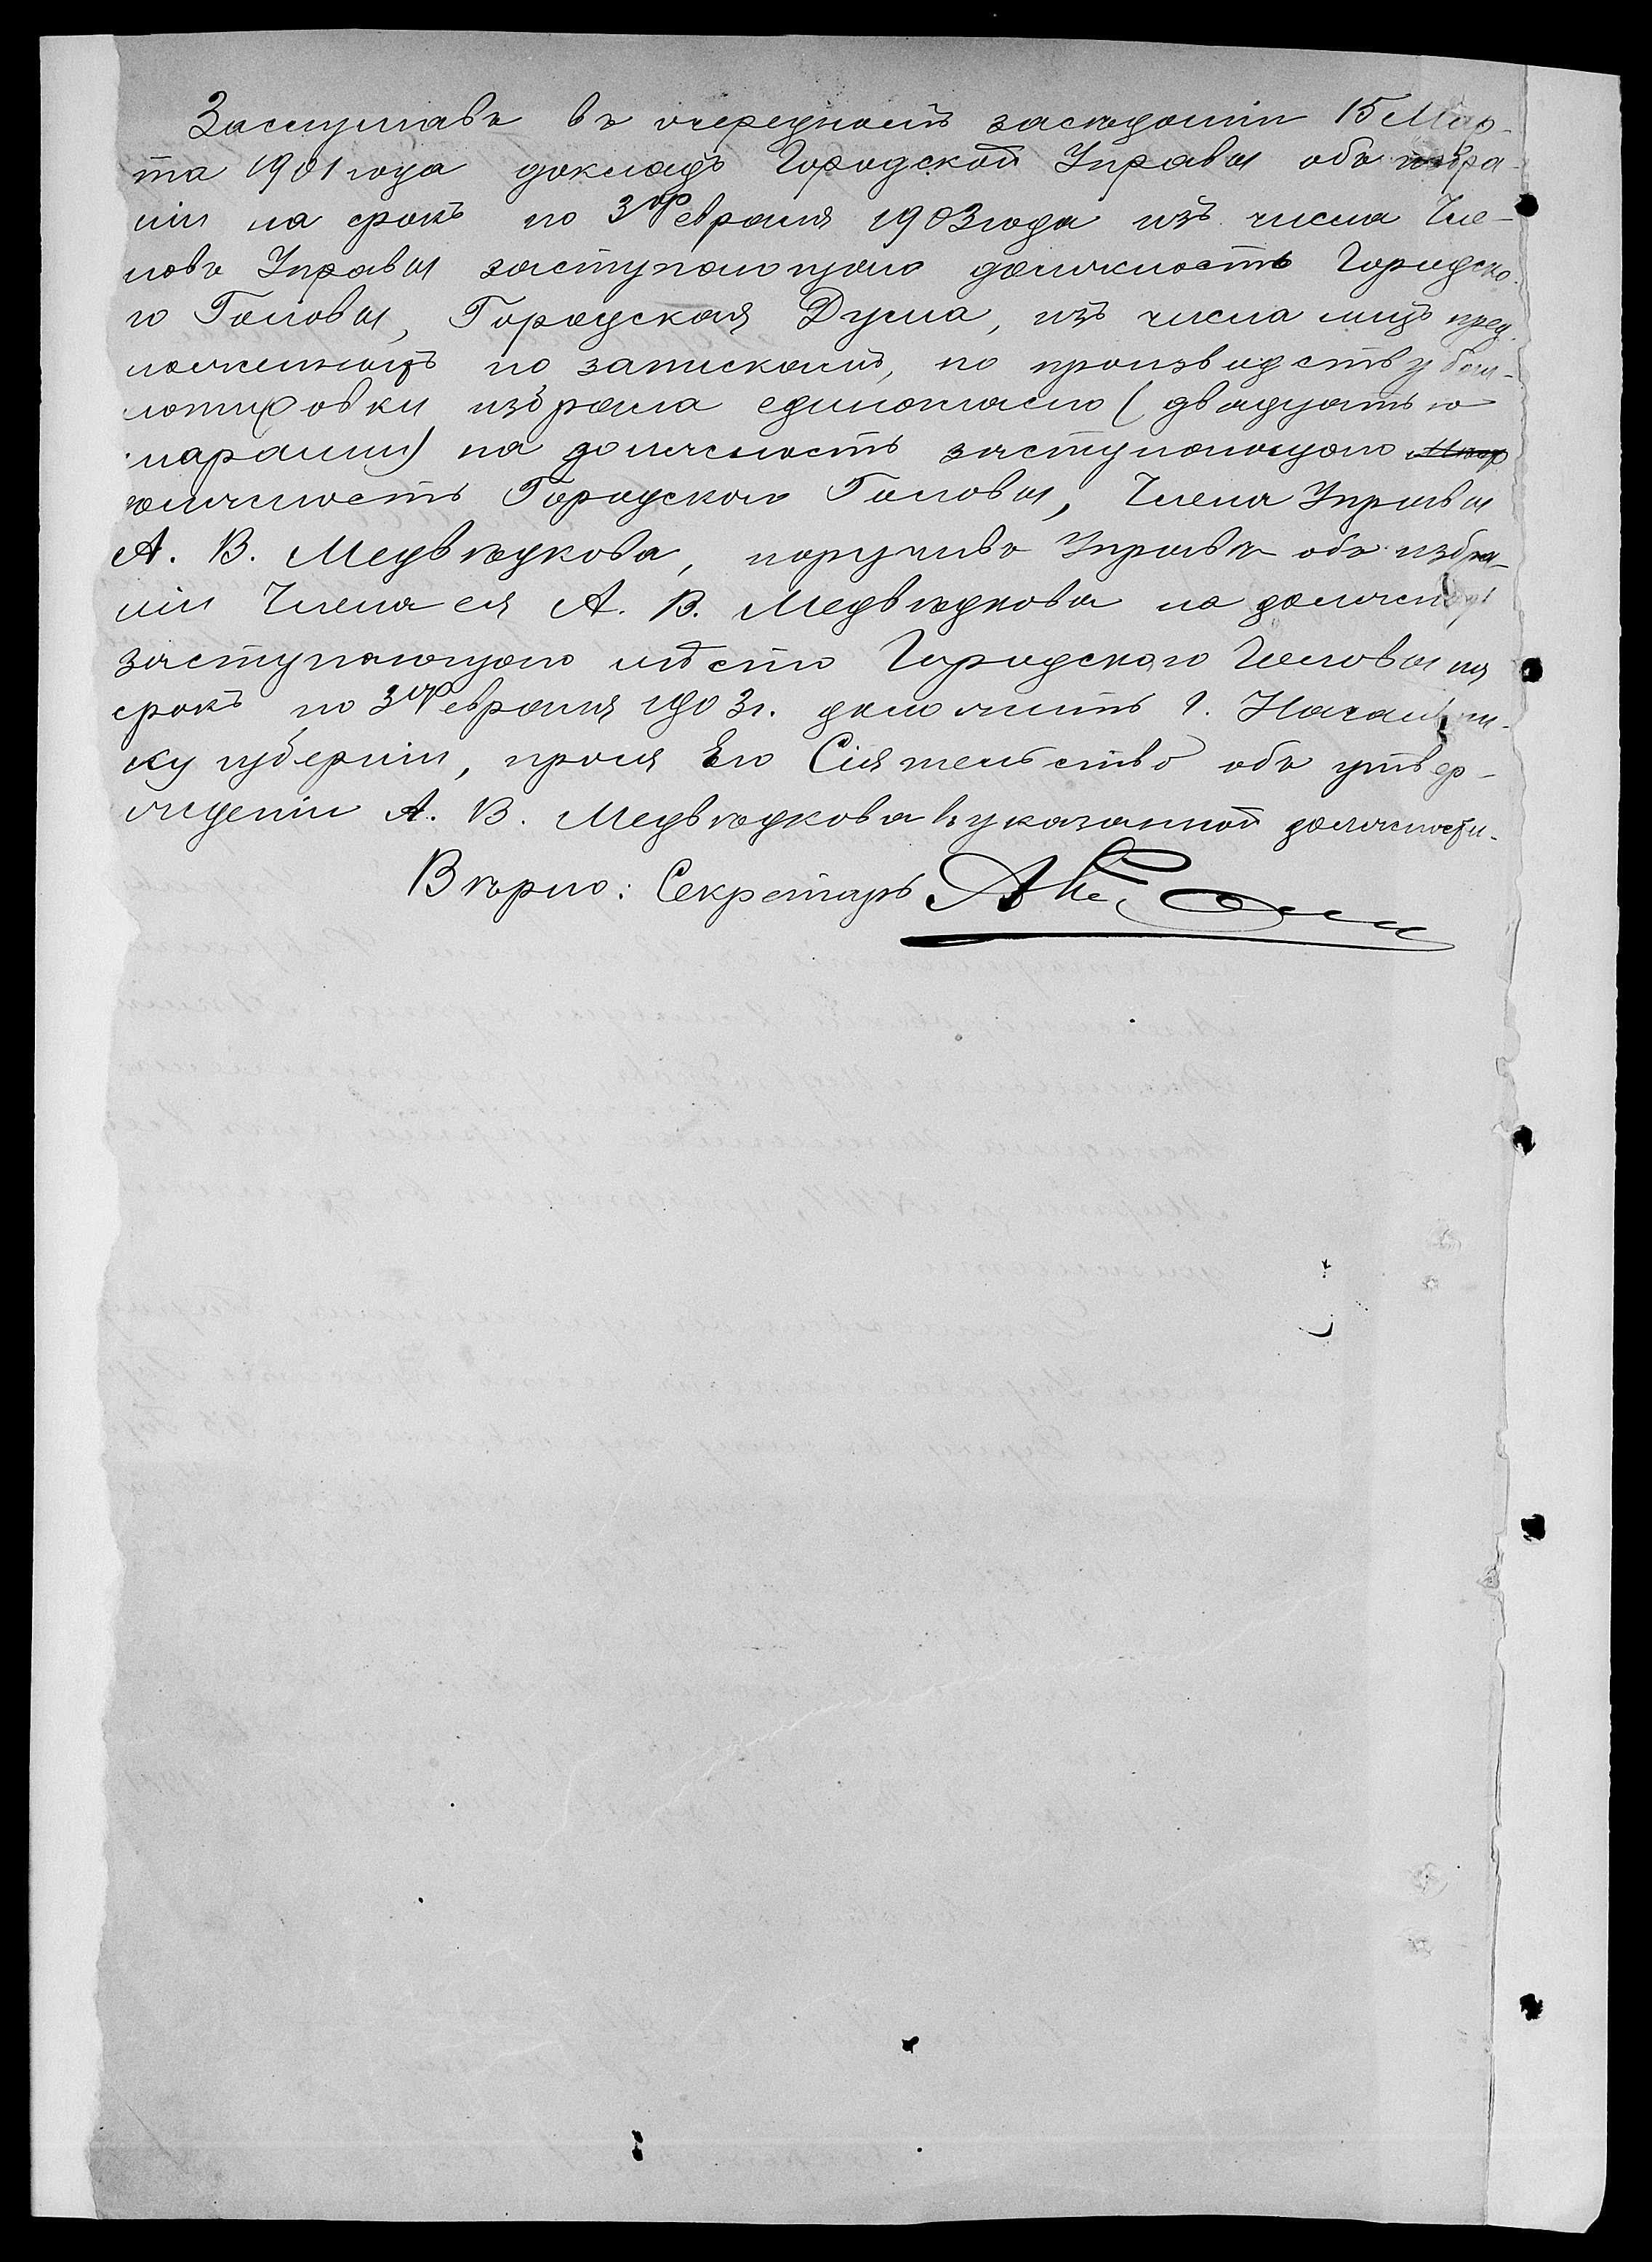 Заслушавъ въ очередномъ засѣданіи 15 Мар-
та 1901 года докладъ Городской Управы объ избра-
ніи на срокъ по 3 Февраля 1903 года изъ числа Чле-
новъ Управы заступающаго должность Городско-
го Головы, Городская Дума, изъ числа лицъ пред-
ложенныхъ по запискамъ, по производству бал-
лотировки избрала единогласно (двадцатью
шарами) на должность заступающаго
должность Городского Головы, Члена Управы
А. В. Медвѣдкова, поручивъ Управѣ объ избра-
ніи Члена ея А. В. Медвѣдкова на должность
заступающаго мѣсто Городского Головы на
срокъ по 3 Февраля 1903 г. доложить г. Начальни-
ку губерніи, прося Его Сіятельство объ утвер-
жденіи А. В. Медвѣдкова въ указанной должности.
Вѣрно: Секретарь